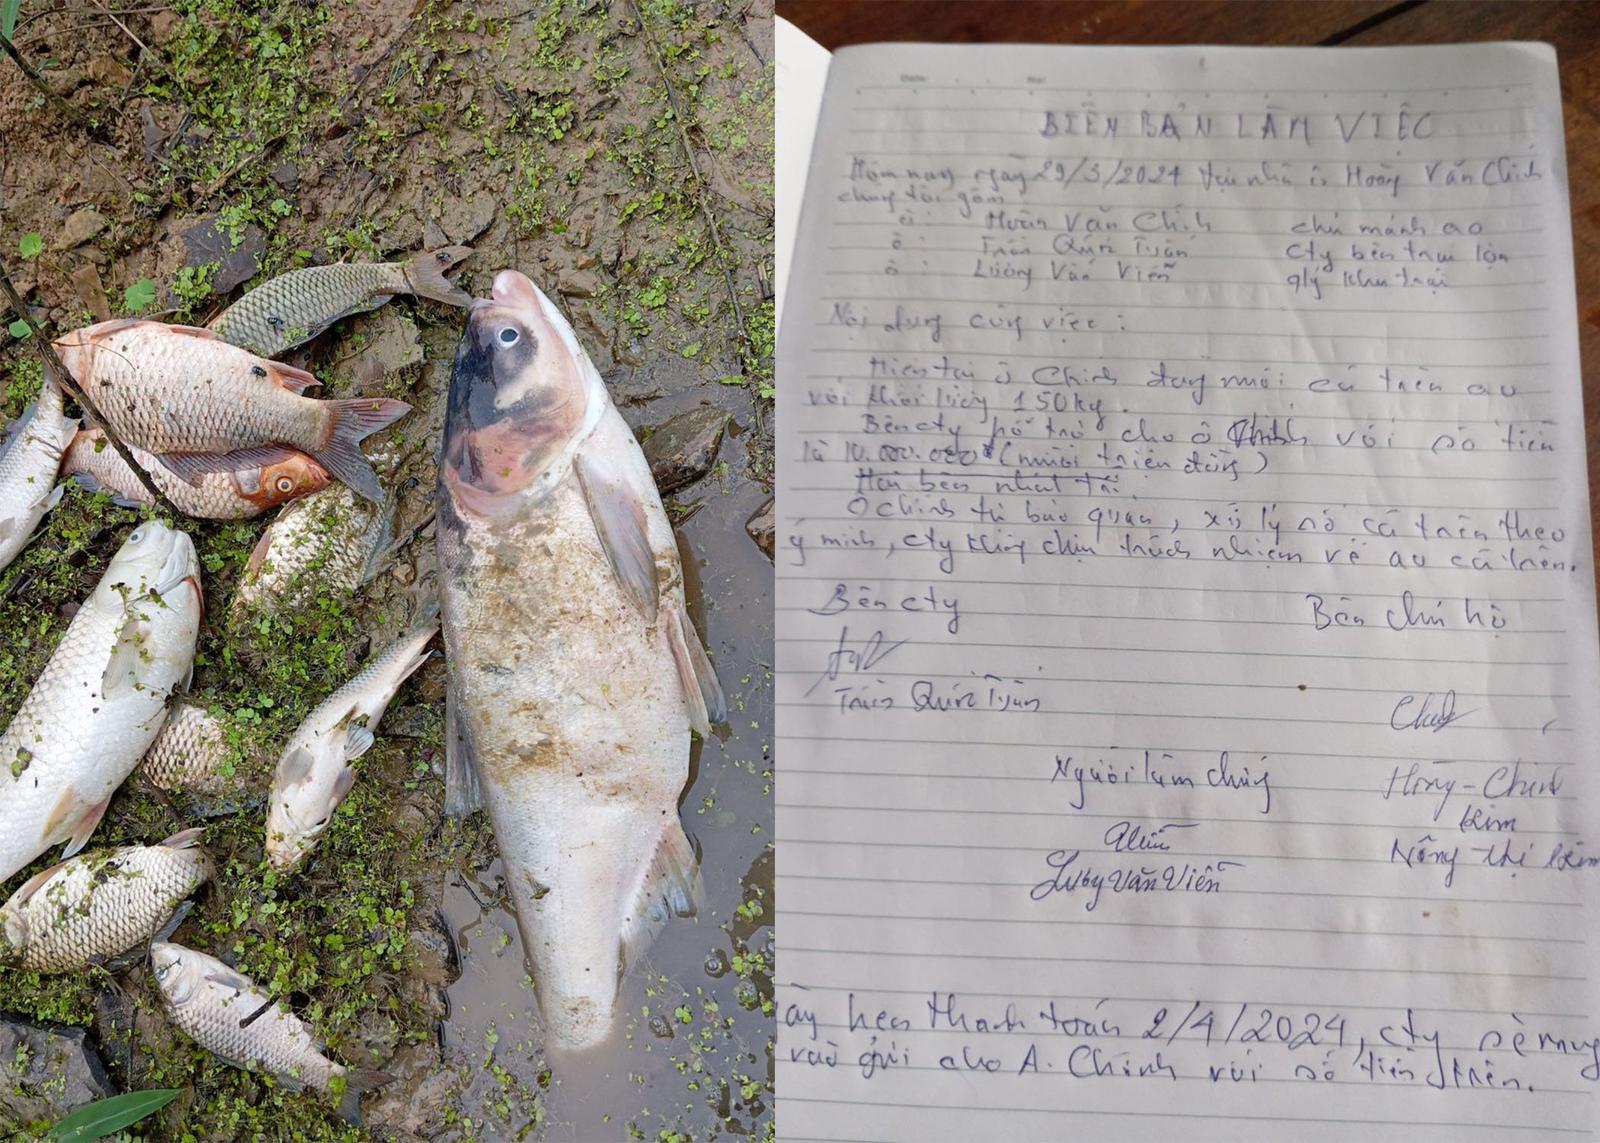 BIÊN BẢN LÀM VIỆC
Hôm nay ngày 29/3/2024 tại nhà ô Hoàng Văn Chinh
chúng tôi gồm
ô: Hoàng Văn Chinh chủ mảnh ao
ô: Trần Tuấn cty bên trại lợn
ô: Lương Văn Viễn qlý khu trại
Nội dung công việc:
Hiện tại ô Chinh đang nuôi cá trên ao
với khối lượng 150kg.
Bên cty hỗ trợ cho ô Chinh với số tiền
là 10.000.000đ (mười triệu đồng)
Hai bên nhất trí
Ô Chinh tự bảo quản, xử lý số cá trên theo
ý mình, cty không chịu trách nhiệm về ao cá trên.
Bên cty Bên chủ hộ
Trần Tuấn
Người làm chứng Hoàng-Chinh
Kim
Lương Văn Viễn Nông Thị Kim
hẹn thanh toán 2/4/2024, cty sẽ mang
vào gửi cho A. Chinh với số tiền trên.